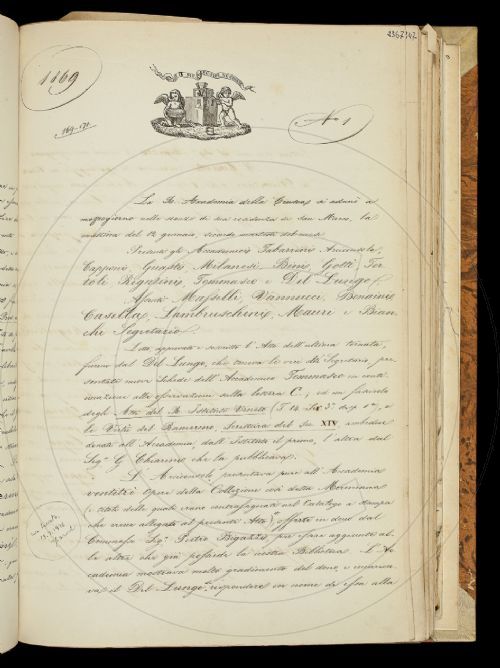 1169
169-171
N. 1
La R. Accademia della Crusca si adunò a
mezzogiorno nelle stanze di sua residenza in San Marco, la
mattina del 12 gennaio, secondo martedì del mese.
Presenti gli Accademici Tabarrini Arciconsolo,
Capponi, Guasti, Milanesi, Bini, Gotti, Ter
toli, Rigutini, Tommaseo e Del Lungo.
Assenti Maffei, Vannucci, Bonaini
Casella, Lambruschini, Mauri e Bian
chi Segretario.
Letto, approvato e sottoscritto l'Atto dell'ultima tornata,
furono dal Del Lungo, che teneva le veci del Segretario, pre
sentate nuove Schede dell'Accademico Tommaseo in conti
nuazione alle osservazioni sulla lettera C., ed un fascicolo
degli Atti del R. Istituto Veneto (T. 14 Ser. 3.
le Virtù del Ramerino, Scrittura del Sec. XIV, ambedue
donati all'Accademia, dall'Istituto il primo, l'altra dal
Sig. G. Chiarini che la pubblicava.
L'Arciconsolo presentava pure all'Accademia
ventitrè Opere della Collezione già detta Moreniana
che viene allegato al presente Atto) offerte in dono dal
Sig. Pietro Bigazzi per essere aggiunte al
le altre che già possiede la nostra Biblioteca. L'Ac
cademia mostrava molto gradimento del dono, e incarica
va il Del Lungo, rispondere in nome di essa alla